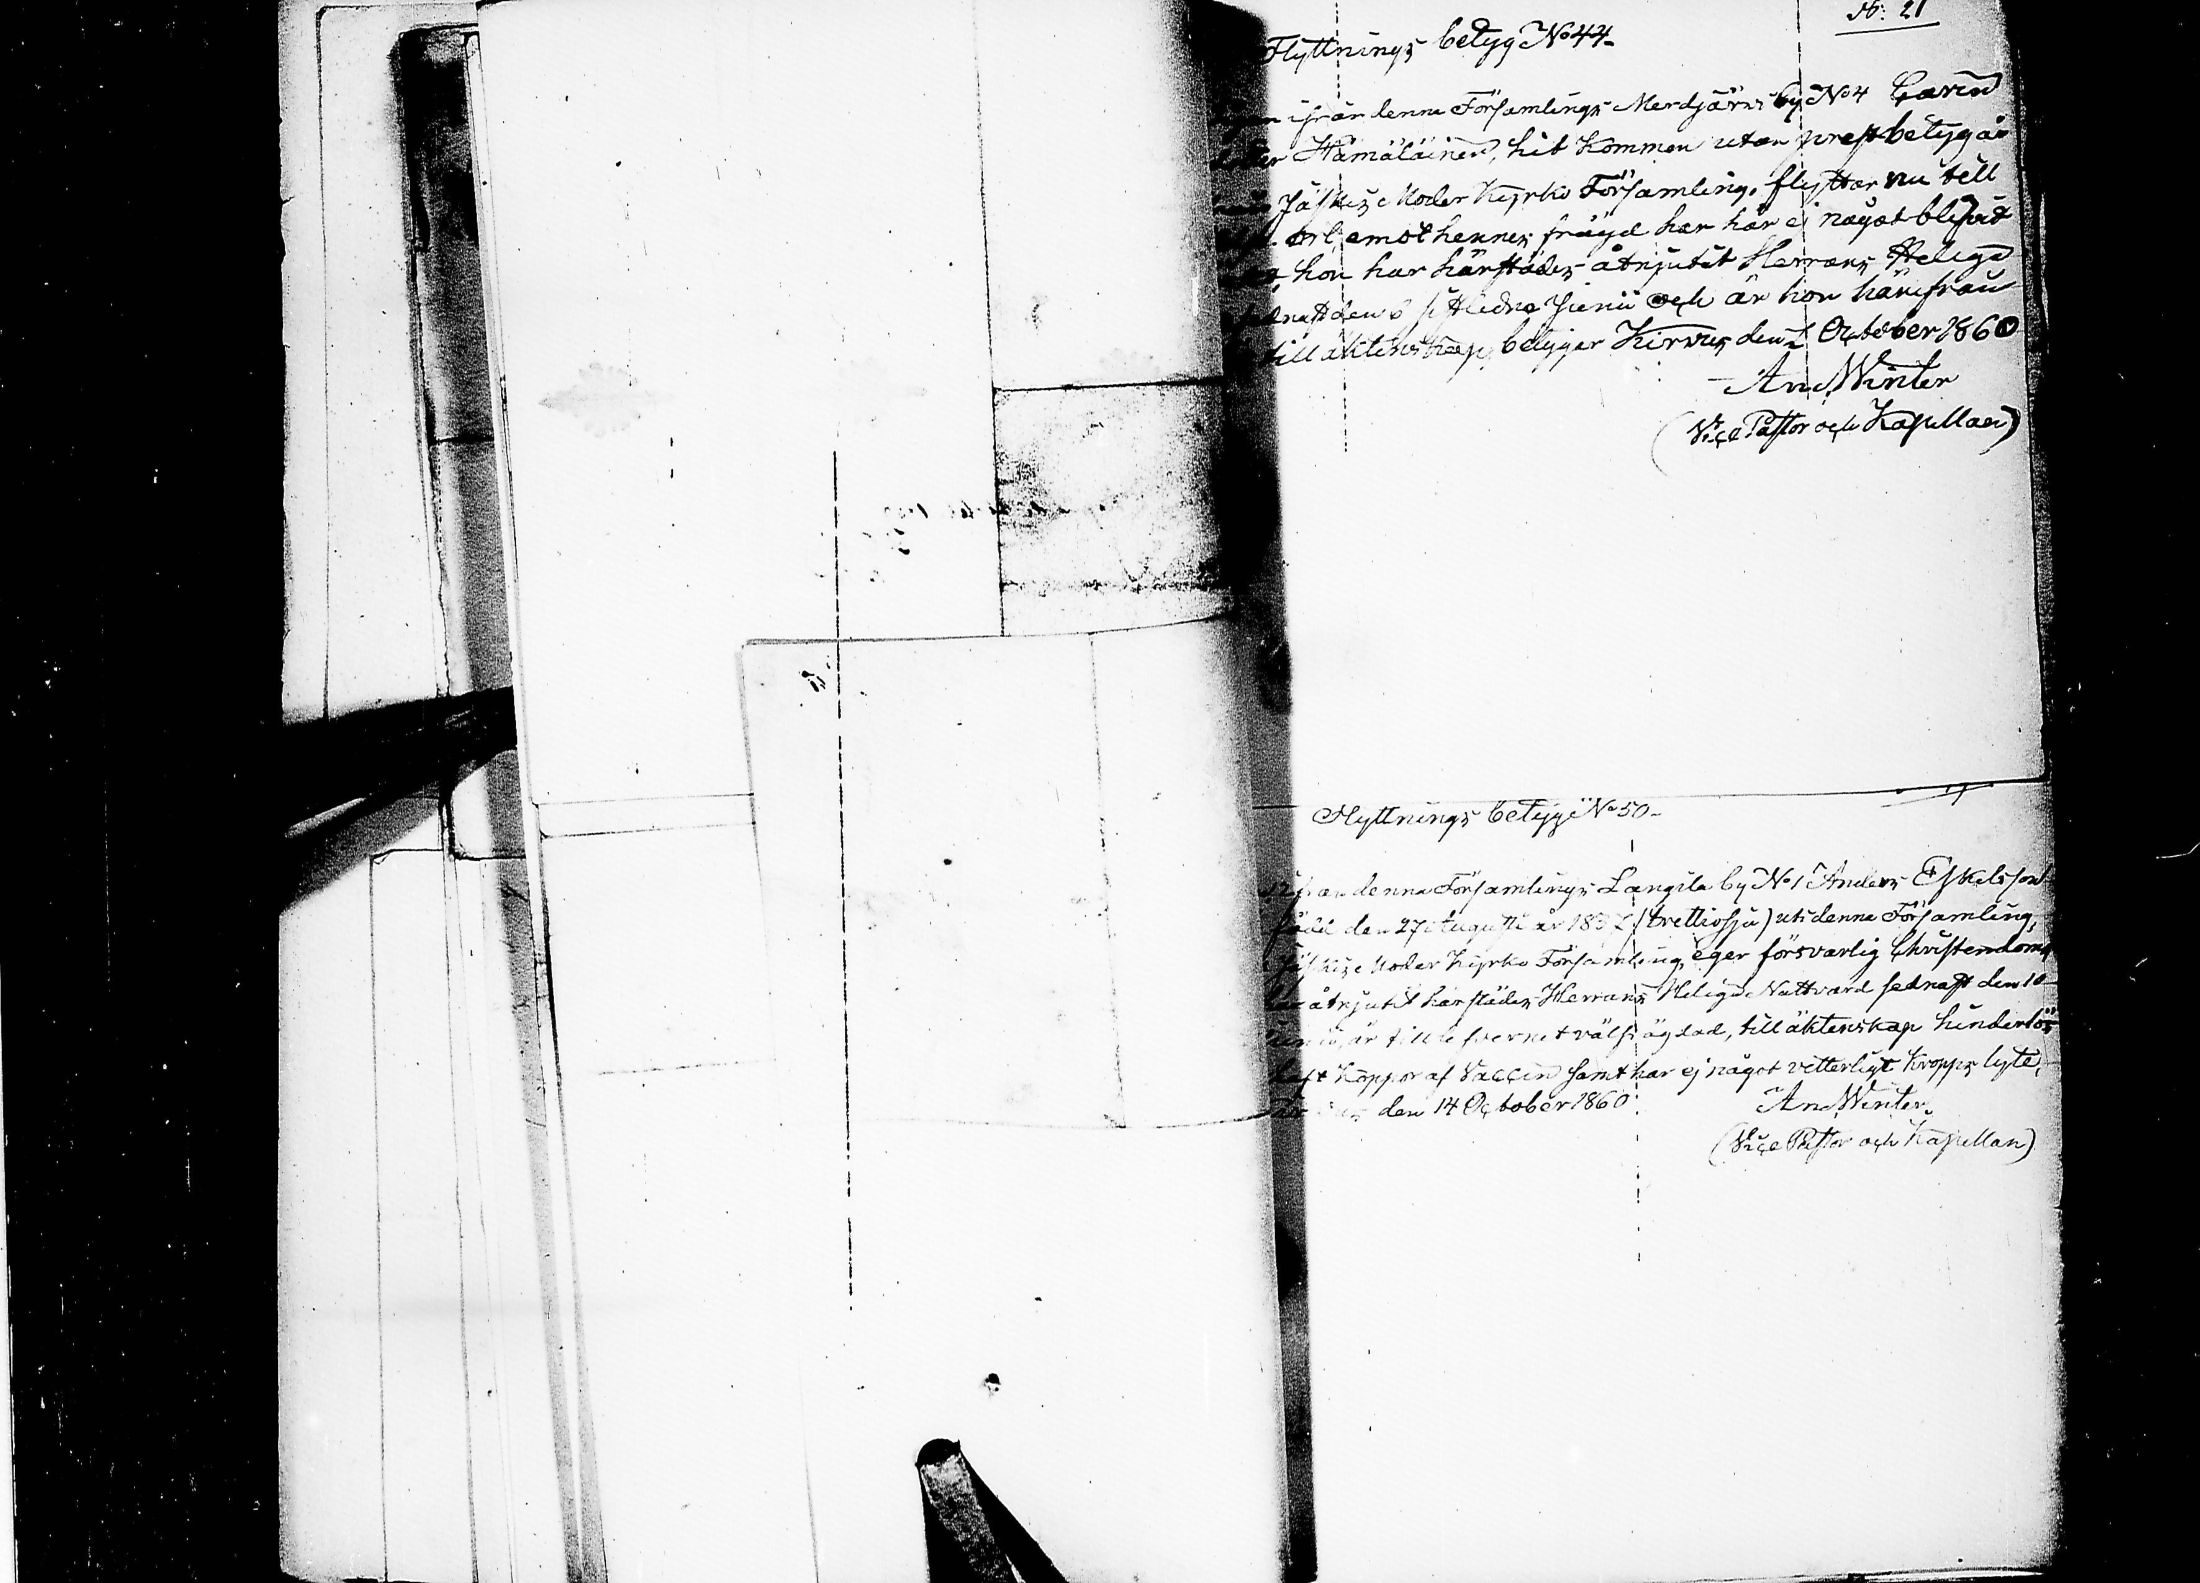 No: 21
Flyttnings betyg No 44.
ifrån denna Församlings Merdjärvi by No 4 Carin
Hämäläinen, hit kommen utan prestbetyg år
Jäskis Moder Kyrko Församling, flyttar nu till
emot hennes frägd har här ej något blifvit
hon har härstädes åtnjutit Herrans Heliga
den 6 sistledne Junii och är hon härifrån
till äktenskap, betygar Kirvus den 1 October 1860
And Winter
(Vice Pastor och Kapellan)
Flyttnings betyg No 50.
ifrån denna Församlings Langila by No 1 Anders Eskelsson
född den 27 Augusti år 1837 (trettiosju) uti denna Församling,
Jäskis Moder Kyrko Församling, eger försvarlig Christendoms
åtnjutit härstädes Herrans Heliga Nattvard sednast den 10
är till lefvernet välfrägdad, till äktenskap hinderlös
haft koppor af Vaccin samt har ej något vetterligt kropps lyte,
den 14 October 1860. And Winter
(Vice Pastor och Kapellan)